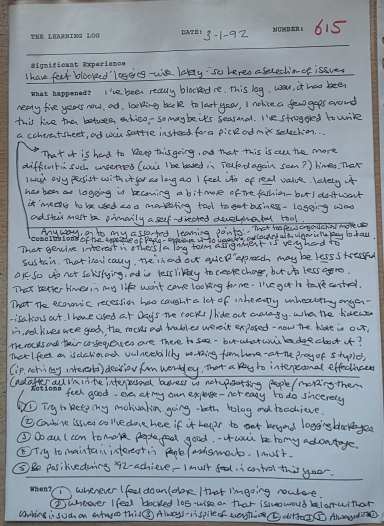 THE LEARNING LOG DATE: 3-1-92 NUMBER: 615
Significant Experience
I have feel blocked logging-wise lately - so heres a selection of issues
What happened? I've been really blocked re. this log. Well, it has been
nearly five years now, ad. looking back to last year, I notice a few gaps around
this time then between entries, so maybe its seasonal. I've struggled to write
a coherent sheet, ad will settle instead for a pick ad mix selection...
That it is hard to keep this going, ad that this is all the more
difficult in such unsettled (will I be based in Telford again soon?) times. That
I will only persist with it for as long as I feel its of real value. Lately it
has been as logging is becoming a bit more of the fashion - but I do it want
it to be used as a marketing tool to get business - logging was
ad still must be primarily a self-directed developmental tool.
Anyway, on to my assorted learning points:- That too few organisations
Conclusions
That genuine interest in these long term assignment is very hard to
sustain. That ironically, the in ad out quick approach may be less stressful
a lot so its not satisfying, ad is less likely to create change, but its less aggro.
That better times in my life wont come looking for me - I've got to take control.
That the economic recession has caught a lot of inherently unhealthy organ-
isations out. I have used at Days the rocks/tide out analogy. When the tide was
in, ad times were good, the rocks ad troubles weren't exposed - now the tide is out,
the rocks ad their consequences are there to see - but what will be done about it?
That I feel an isolation ad vulnerability working from home - at the prey of stupid,
(ie. not in my interests) decisions from Wembley. That a key to interpersonal effectiveness
(ad after all I'm in the interpersonal business is not upsetting people/making them
Actions feel good - even at my own expense - not easy to do sincerely
① Try to keep my motivation going - both to log ad to achieve.
② Combine issues as I've done here if it helps to get beyond logging blockages
③ Do all I can to make people feel good - it will be to my advantage.
④ Try to maintain interest in people/assignments. I must.
⑤ Be positive during '92 - achieve - I must feel in control this year.
When? ① Whenever I feel down/alone/that I'm going nowhere.
② Whenever I feel blocked log-wise or that issues would be lost without
combining in such an entry as this ③ Always - in spite of everything ④ ditto ⑤ Always